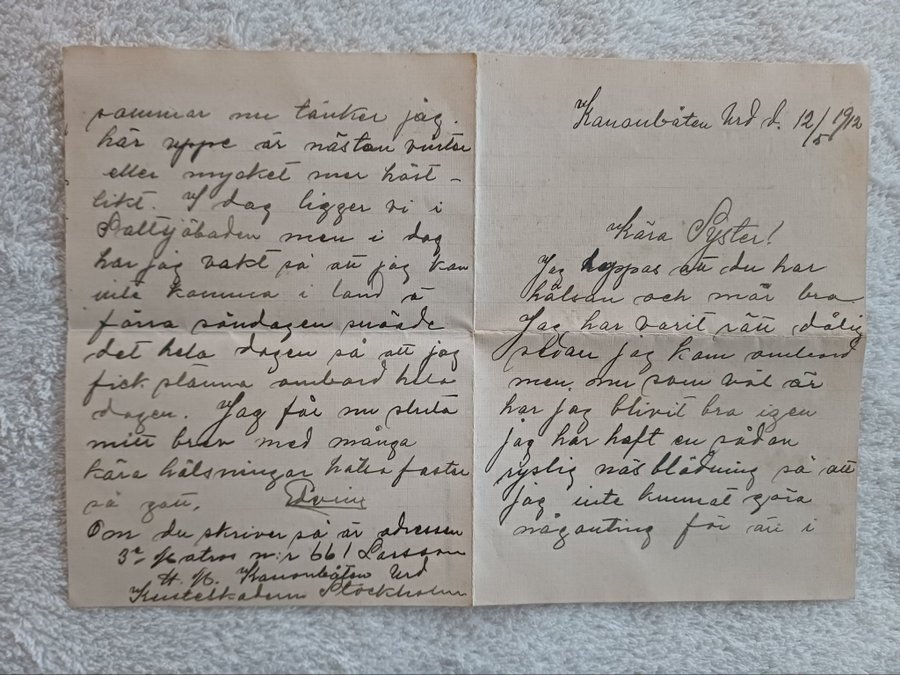 Kanonbåten Urd d. 12/5 1912
Kära Syster!
Jag hoppas att du har
hälsan och mår bra
Jag har varit rätt dålig
sedan jag kom ombord
men nu som väl är
har jag blivit bra igen
jag har haft en sådan
ryslig näsblödning så att
jag inte kunnat göra
någonting för att i
sommar nu tänker jag.
här uppe är nästan vinter
eller mycket mer höst-
likt. I dag ligger vi i
Saltsjöbaden men i dag
har jag vakt så att jag kan
inte komma i land å
förra söndagen snöade
det hela dagen så att jag
fick stanna ombord hela
dagen. Jag får nu sluta
mitt brev med många
kära hälsningar hälsa faster
så gott. Edvin
Om du skriver så är adressen
3e Matros n:r 661 Larsson
H. M. Kanonbåten Urd
Kusteskadern Stockholm